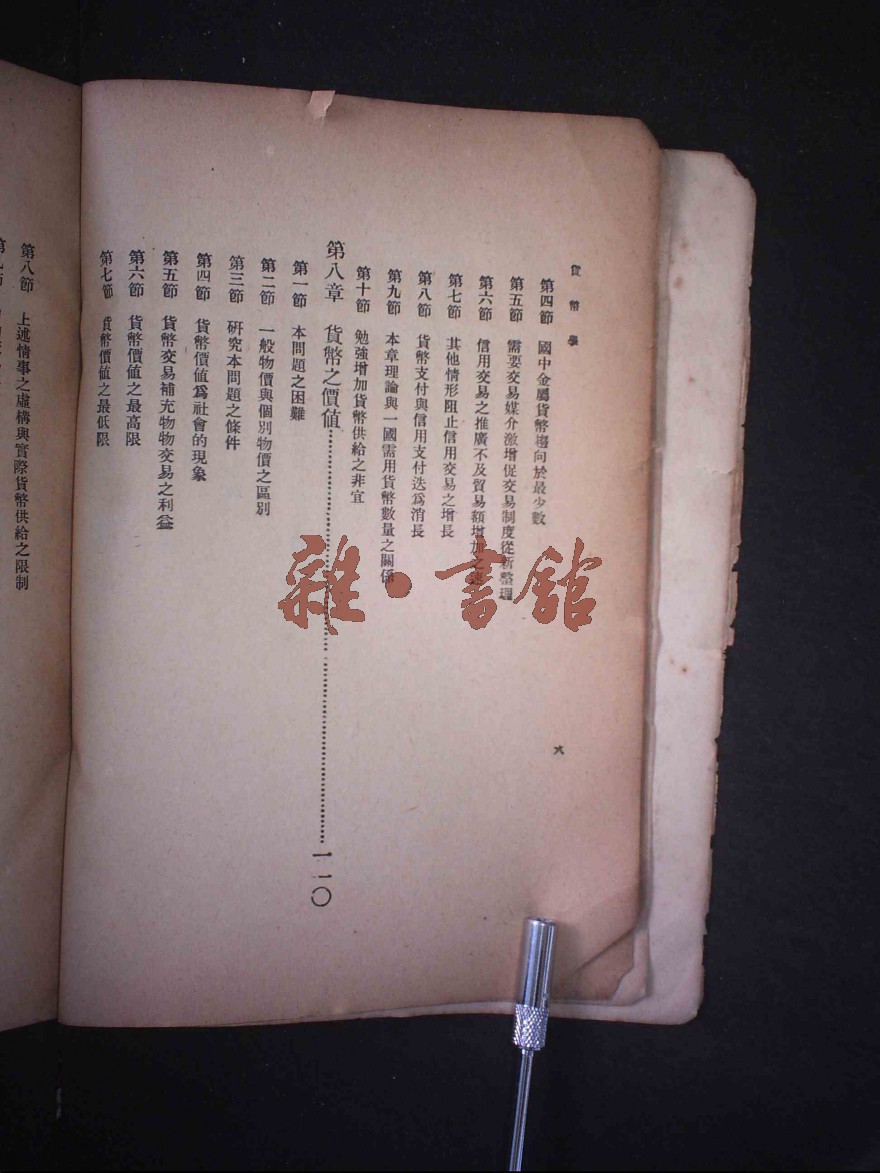 貨幣學
第四節 國中金屬貨幣趨向於最少數
第五節 需要交易媒介激增促交易制度從新整理
第六節 信用交易之推廣不及貿易額增加之速
第七節 其他情形阻止信用交易之增長
第八節 貨幣支付與信用支付迭爲消長
第九節 本章理論與一國需用貨幣數量之關係
第十節 勉強增加貨幣供給之非宜
第八章 貨幣之價值⋯⋯⋯⋯⋯⋯⋯⋯一一〇
第一節 本問題之困難
第二節 一般物價與個別物價之區別
第三節 研究本問題之條件
第四節 貨幣價值爲社會的現象
第五節 貨幣交易補充物物交易之利益
第六節 貨幣價值之最高限
第七節 貨幣價值之最低限
六
第八節 上述情事之虛構與實際貨幣供給之限制
雜·書館